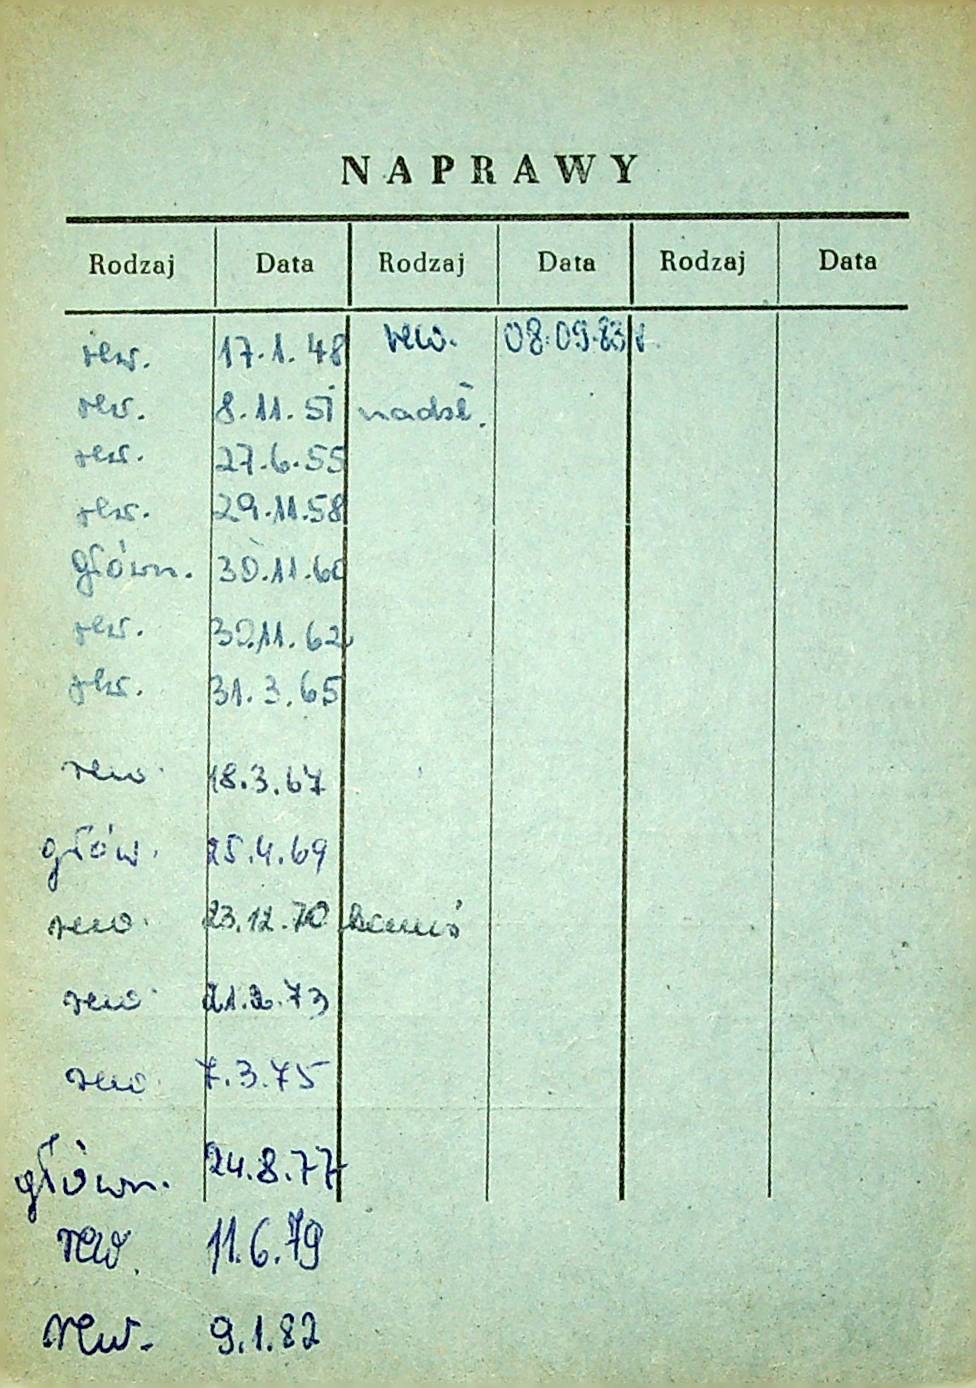 NAPRAWY
Rodzaj Data Rodzaj Data Rodzaj Data
rew. 17.1.48 rew. 08.09.83r.
rew. 8.11.51 nadzl.
rew. 27.6.55
rew. 29.11.58
główn. 30.11.60
rew. 30.11.62
rew. 31.3.65
rew. 18.3.67
głów. 25.4.69
rew. 23.12.70
rew. 21.2.73
rew. 7.3.75
główn. 24.8.77
rew. 11.6.79
rew. 9.1.82